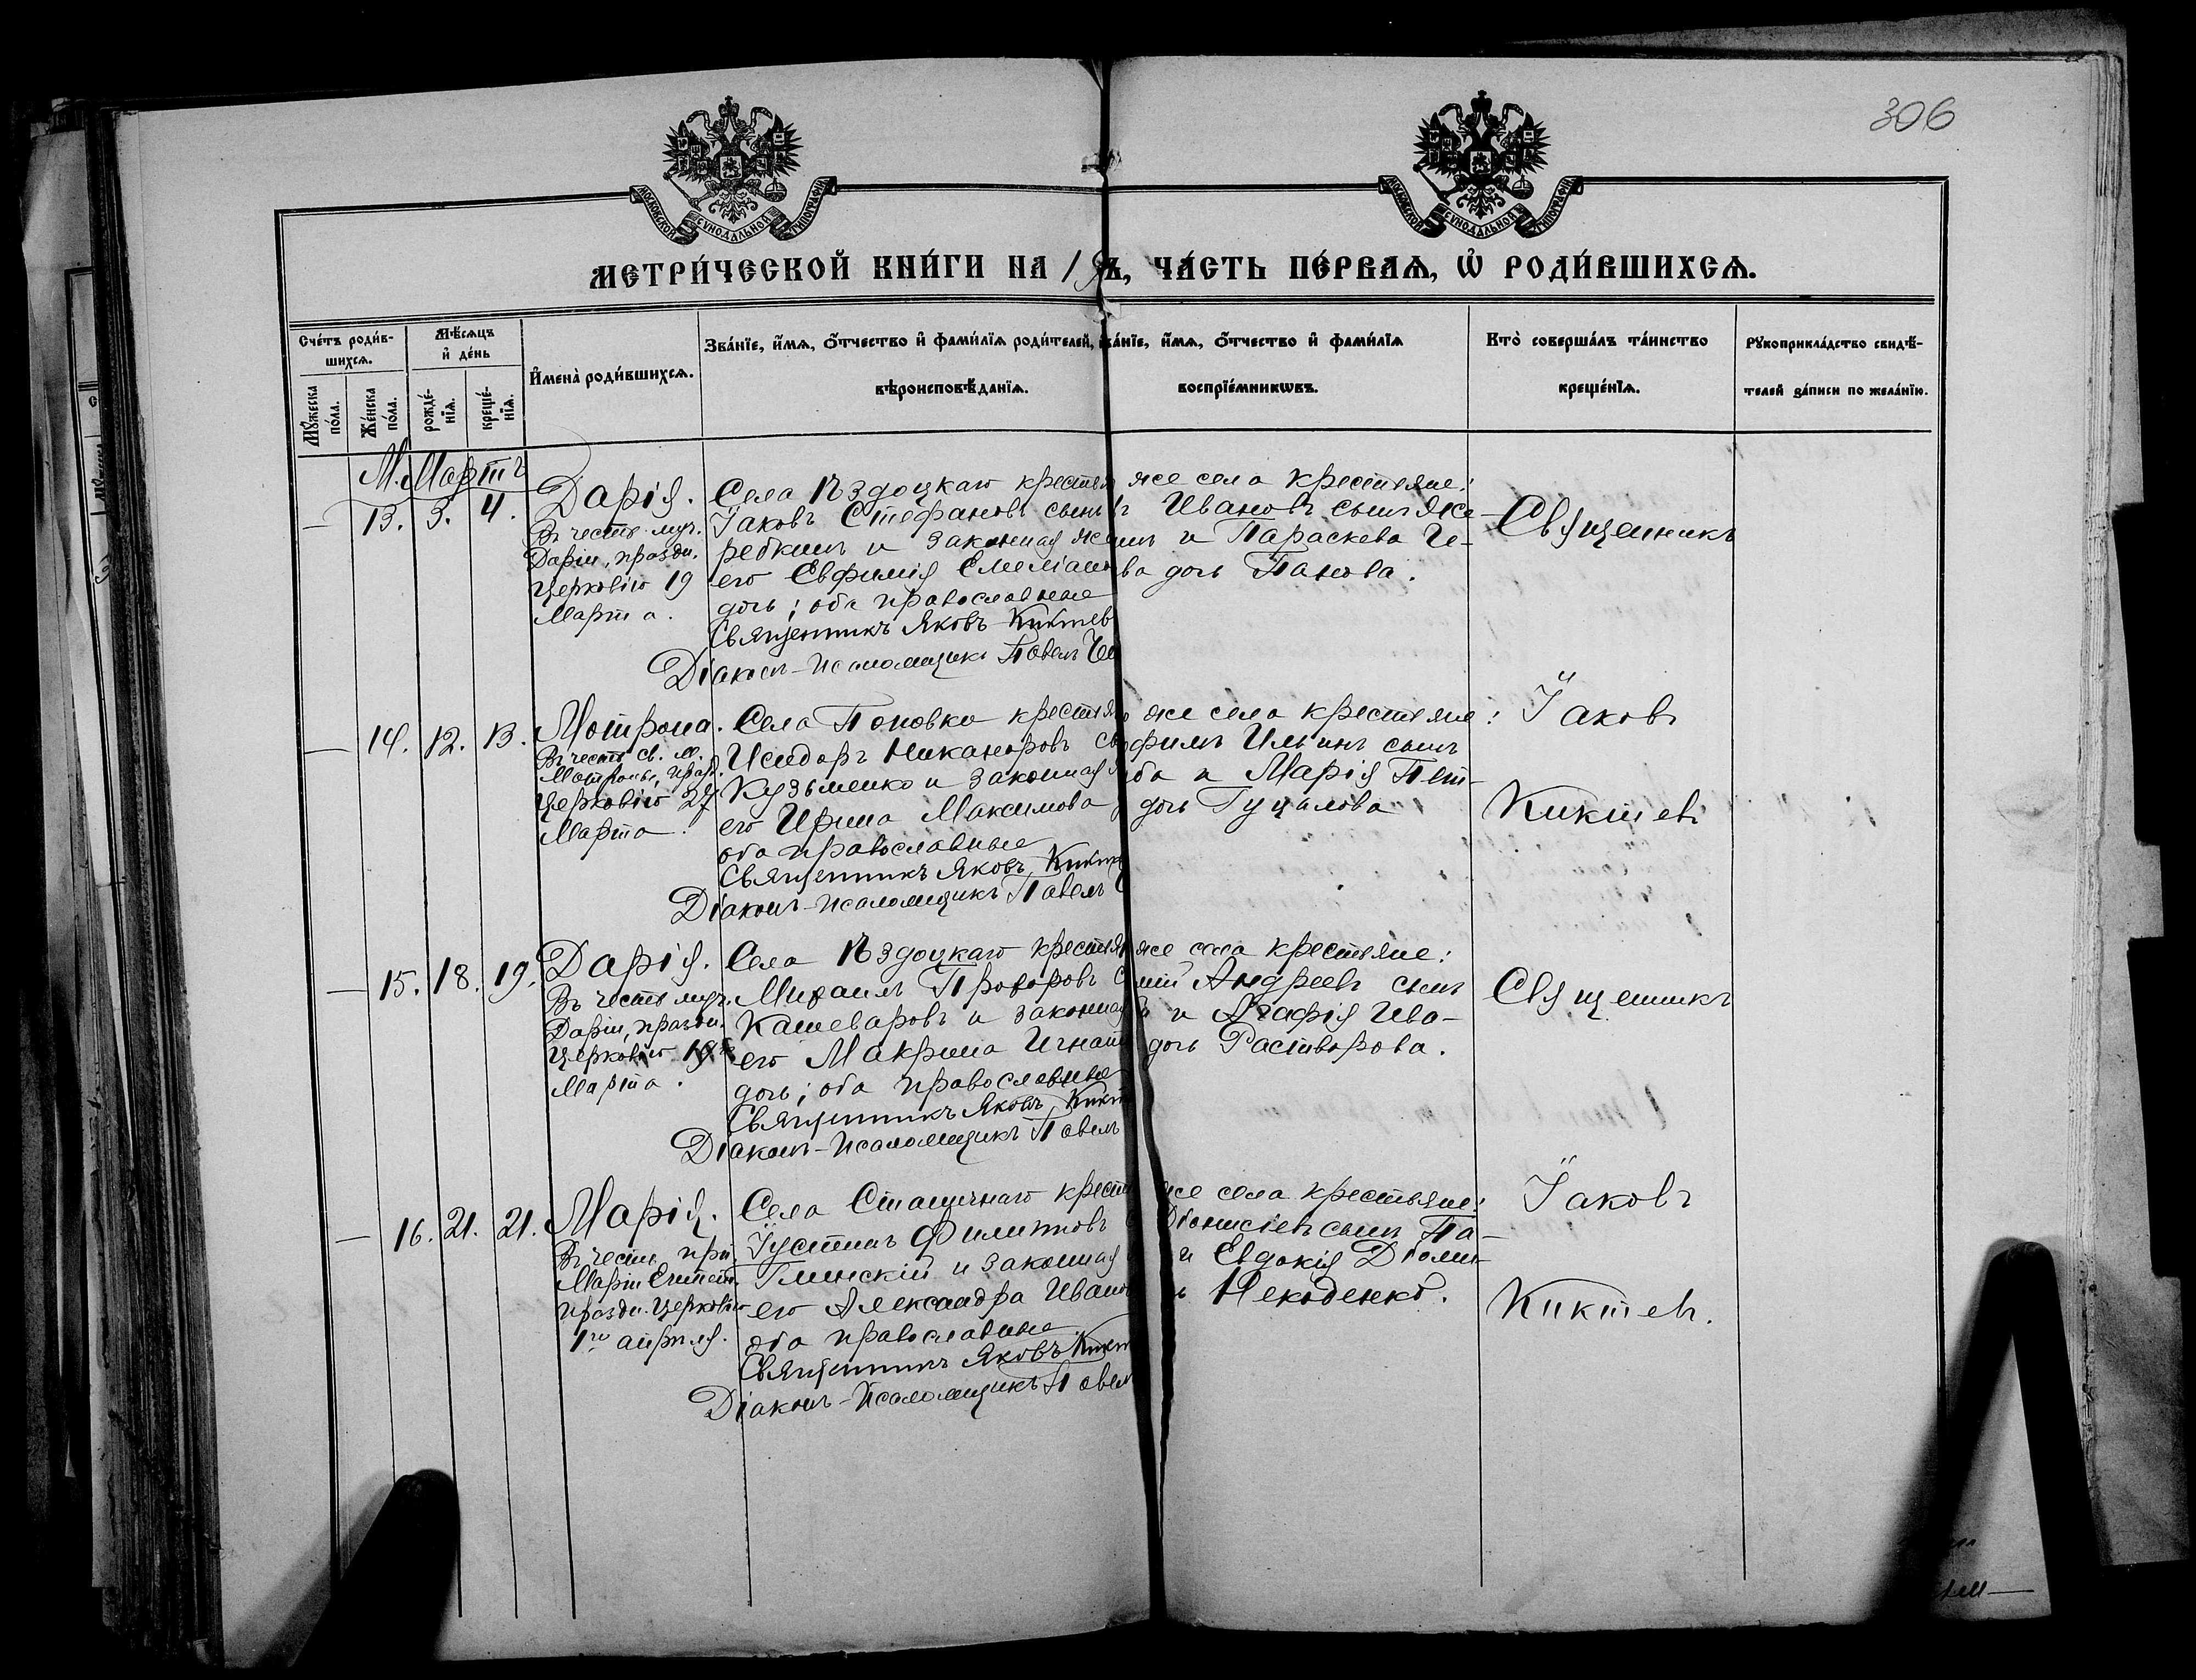 306
МОСКОВСКОЙ СУНОДАЛЬНОЙ ТИПОГРАФІИ
МОСКОВСКОЙ СУНОДАЛЬНОЙ ТИПОГРАФІИ
МЕТРИ́ЧЕСКОЙ КНИ́ГИ НА 1 Ъ, ЧА́СТЬ ПЕ́РВАѦ, Ѡ҆ РОДИ́ВШИХСѦ.
Сче́тъ роди́в-
шихсѧ.
Мꙋ́жеска по́ла.
Же́нска по́ла.
Мѣ́сѧцъ
и҆ де́нь
рожде́-
нїѧ.
креще́-
нїѧ.
И҆мена̀ роди́вшихсѧ.
Зва́нїе, и҆́мѧ, ѻ҆́тчество и҆ фами́лїѧ роди́телей,
вѣроисповѣ́данїѧ.
зва́нїе, и҆́мѧ, ѻ҆́тчество и҆ фами́лїѧ
воспрїе́мникѡвъ.
Кто̀ соверша́лъ та́инство
креще́нїѧ.
Рꙋкоприкла́дство свидѣ́-
телей за́писи по жела́нїю.
М. Мартъ
— 13. 3. 4.
Дарія.
Въ честь муч.
Даріи, праздн.
Церковію 19
Марта.
Села Ѣздоцкаго крестья
Іаковъ Стефановъ сынъ
ребкинъ и законная же
его Евфимія Емеліано
дочь; оба православные
Священникъ Яковъ Киктев
Діаконъ-Псаломщикъ Павелъ
же села крестьяне:
Ивановъ сынъ Же
и Параскева
дочь Панова.
Священникъ
— 14. 12. 13.
Мотрона.
Въ честь св. м.
Мотроны, празд.
Церковію 27
Марта.
Села Поповки крестья
Исидоръ Никаноровъ
Кузьменко и законная
его Ирина Максимова
оба православные
Священникъ Яковъ Кикт
Діаконъ-Псаломщикъ Павелъ
же села крестьяне:
Ильинъ сынъ
и Марія Пет-
дочь Гуцалова
Іаковъ
Киктевъ
— 15. 18. 19.
Дарія.
Въ честь муч.
Даріи, праздн.
Церковію 19
Марта.
Села Ѣздоцкаго крестья
Михаилъ Прохоровъ
Кашеваровъ и законная
его Макрина Игнат
дочь; оба православные
Священникъ Яковъ Кикт
Діаконъ-Псаломщикъ Павелъ
же села крестьяне:
Андреевъ сынъ
и Агафія Ива-
дочь Растворова.
Священникъ
— 16. 21. 21.
Марія.
Въ честь прп.
Маріи Египет.
праздн. Церковію
1го апрѣля.
Села Сташичнаго крестья
Іустинъ Филипповъ
Глинскій и законная
его Александра Ивано
оба православные.
Священникъ Яковъ Кикт
Діаконъ-Псаломщикъ Павел
же села крестьяне:
Діонисіевъ сынъ Па-
и Евдокія Діоми-
Некоденко.
Іаковъ
Киктевъ.